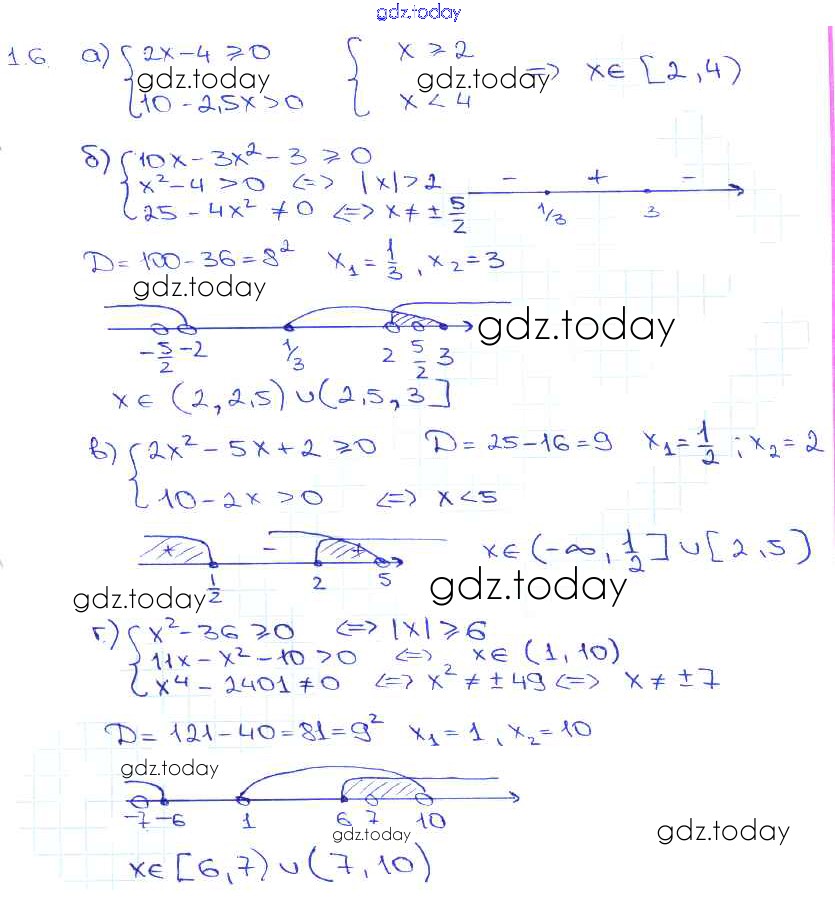 gdz.today
1.6. а) { 2x - 4 ≥ 0 { x ≥ 2 => x ∈ [2, 4)
gdz.today gdz.today
10 - 2,5x > 0 x < 4
б) { 10x - 3x² - 3 ≥ 0
x² - 4 > 0 <=> |x| > 2 - + -
25 - 4x² ≠ 0 <=> x ≠ ± 5/2 1/3 3
D = 100 - 36 = 8² x₁ = 1/3, x₂ = 3
gdz.today
gdz.today
-5/2 -2 1/3 2 5/2 3
x ∈ (2, 2,5) ∪ (2,5, 3]
в) { 2x² - 5x + 2 ≥ 0 D = 25 - 16 = 9 x₁ = 1/2 ; x₂ = 2
10 - 2x > 0 <=> x < 5
+ - + x ∈ (-∞, 1/2] ∪ [2, 5)
1/2 2 5
gdz.today gdz.today
г.) { x² - 36 ≥ 0 <=> |x| ≥ 6
11x - x² - 10 > 0 <=> x ∈ (1, 10)
x⁴ - 2401 ≠ 0 <=> x² ≠ ± 49 <=> x ≠ ± 7
D = 121 - 40 = 81 = 9² x₁ = 1, x₂ = 10
gdz.today
-7 -6 1 6 7 10
gdz.today gdz.today
x ∈ [6, 7) ∪ (7, 10)